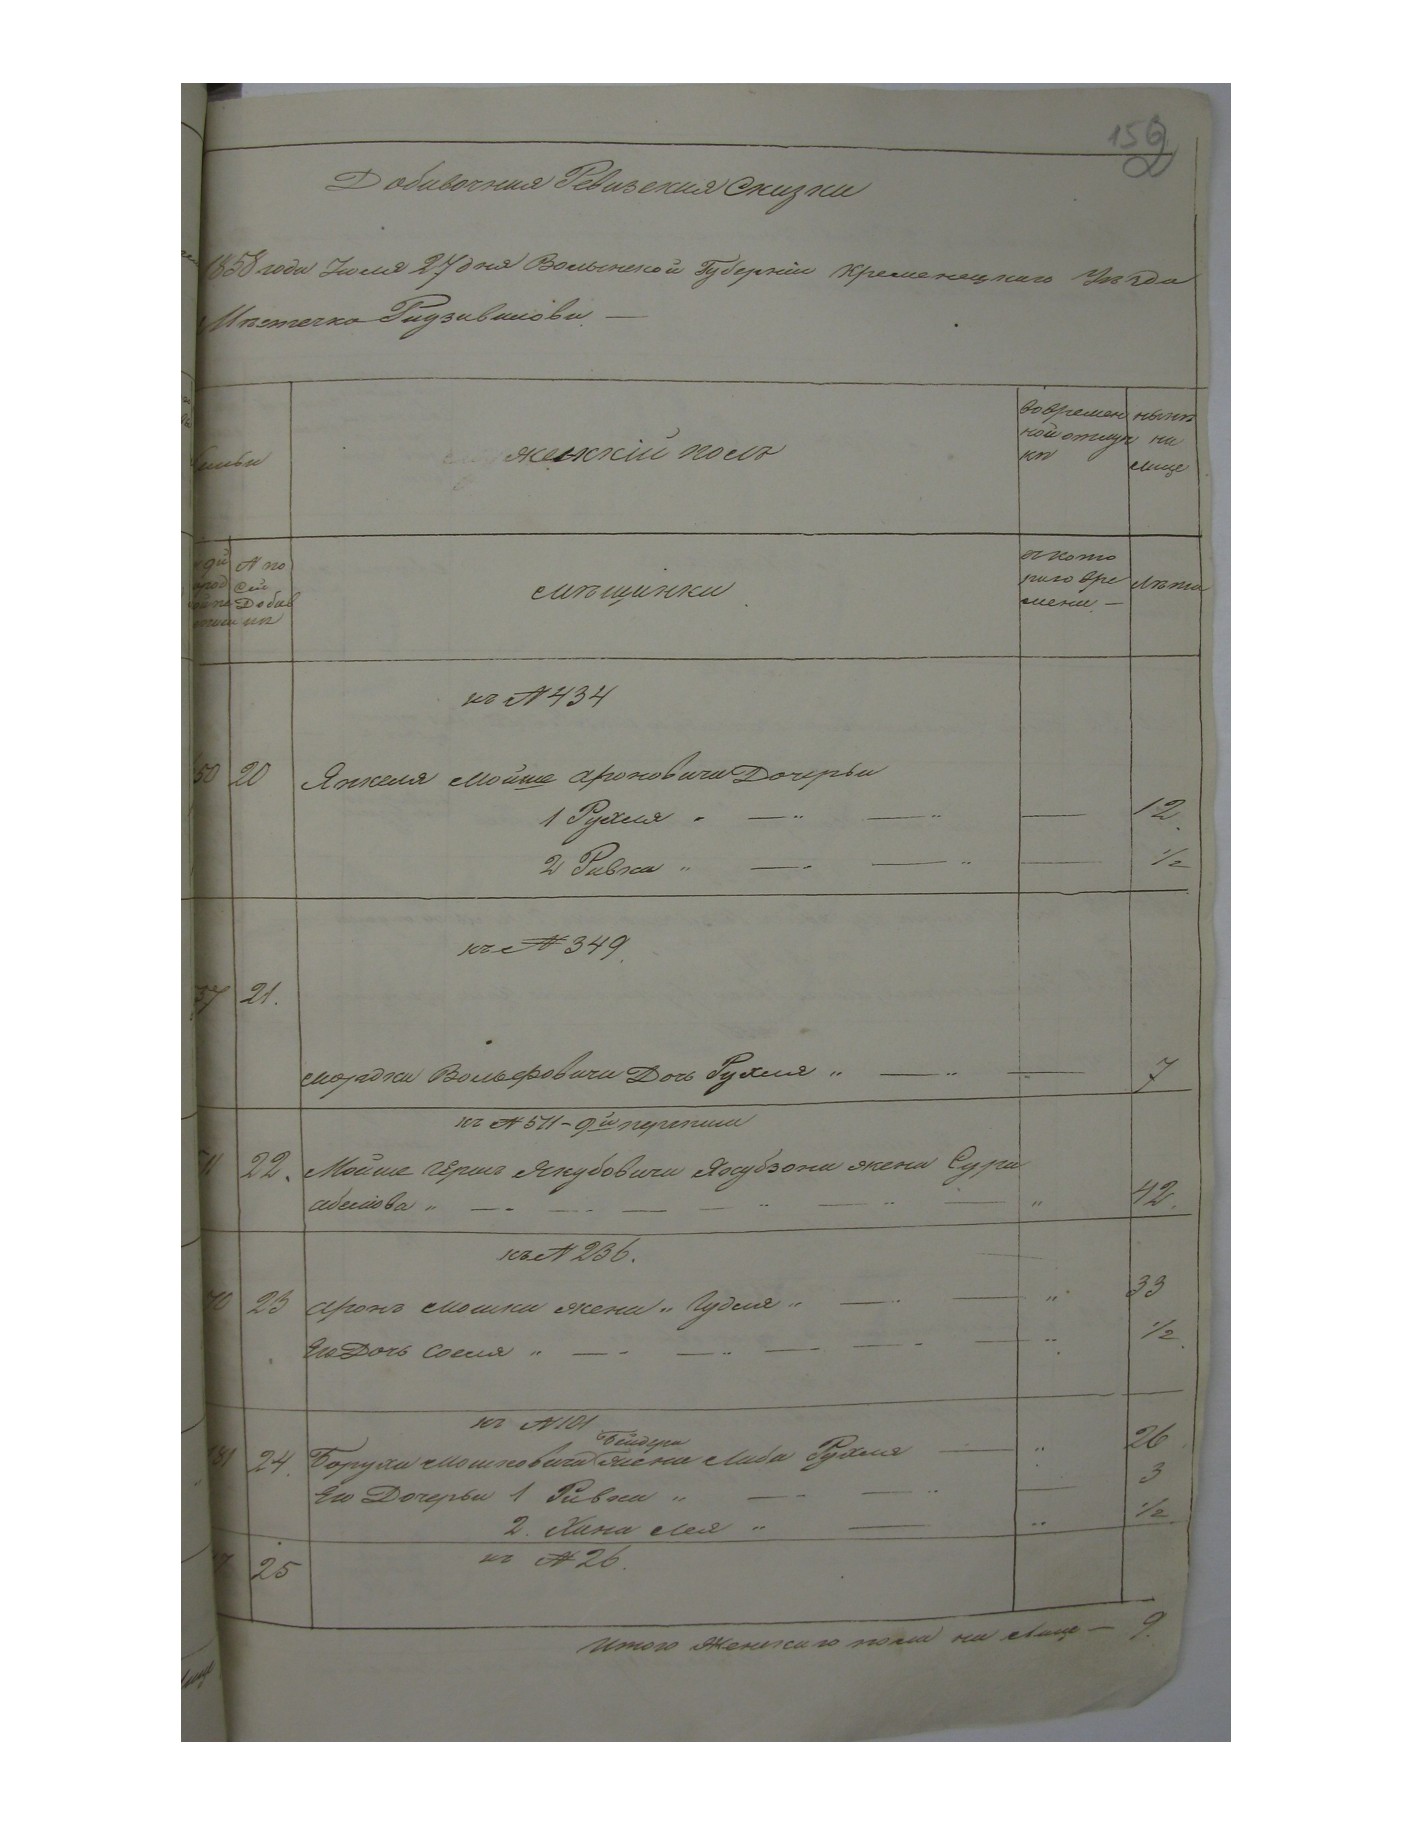 159
Добавочная Ревизская Сказка
1858 года Июля 27 дня Волынской Губерніи Кременецкаго Уѣзда
Мѣстечка Радзивилова —
семьи
женскій полъ
во времен
ной отлуч
кѣ
нынѣ
на
лице
№ по
сей
Добав
кѣ
мѣщанки
съ кото
раго вре
мени —
лѣта
къ № 434
50 20 Янкеля Мойше Ароновича Дочерьи
1 Рухля " — " — " — 12
2 Ривка " — " — " — 1/2
къ № 349
37 21.
Мордки Вольфовича Дочь Рухля " — " — 7
къ № 511 – 9й переписи
511 22. Мойше Герша Якубовича Якубзона жена Сура
Абелова " — " — " — " — " — " 42.
къ № 236.
70 23 Аронъ Мошка жена " Гудля " — " — " 33
Его Дочь Сосля " — " — " — " — " 1/2
къ № 101
Бейдера
181 24. Боруха Мошковича жена Либа Рухля — " 26
Его Дочерьи 1 Ривка " — " — " — 3
2. Хана Лея " — " 1/2
25 къ № 26.
Итого Женскаго пола на Лице — 9.